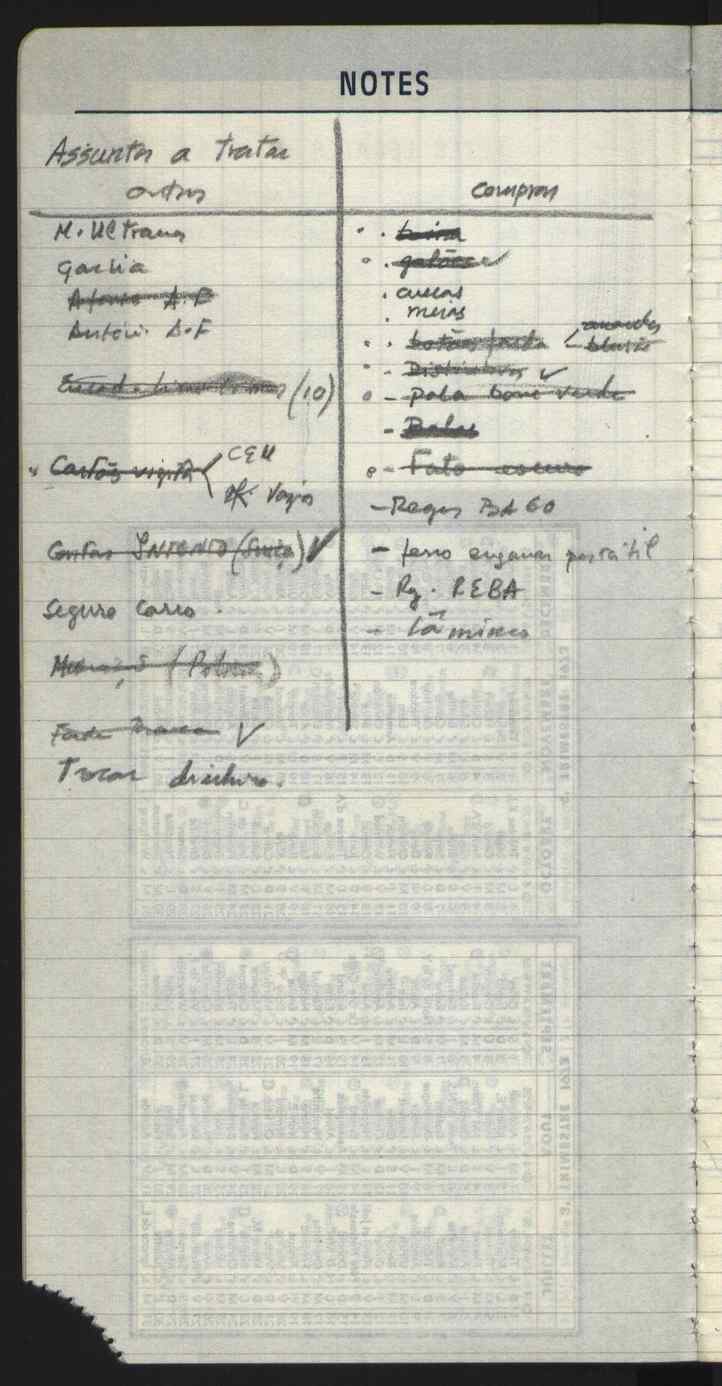 NOTES
Assuntos a Tratar
outros
M. Ultramar
Garcia
Afonso A.F
António A.F
(10)
Cartões visita
CEU
Vagos
Contas INTENTO (Suiça) ✓
Seguro Carro.
(Polícia)
Farda Branca ✓
Trocar dinheiro.
Compras
. boina
. galões ✓
. cuecas
. meias
. botões farda < 
blusão
- Distintivos ✓
- pala boné verde
- Balas
- Fato escuro
- Reger BA 60
- ferro engomar portátil
- Rg. REBA
- Lâminas